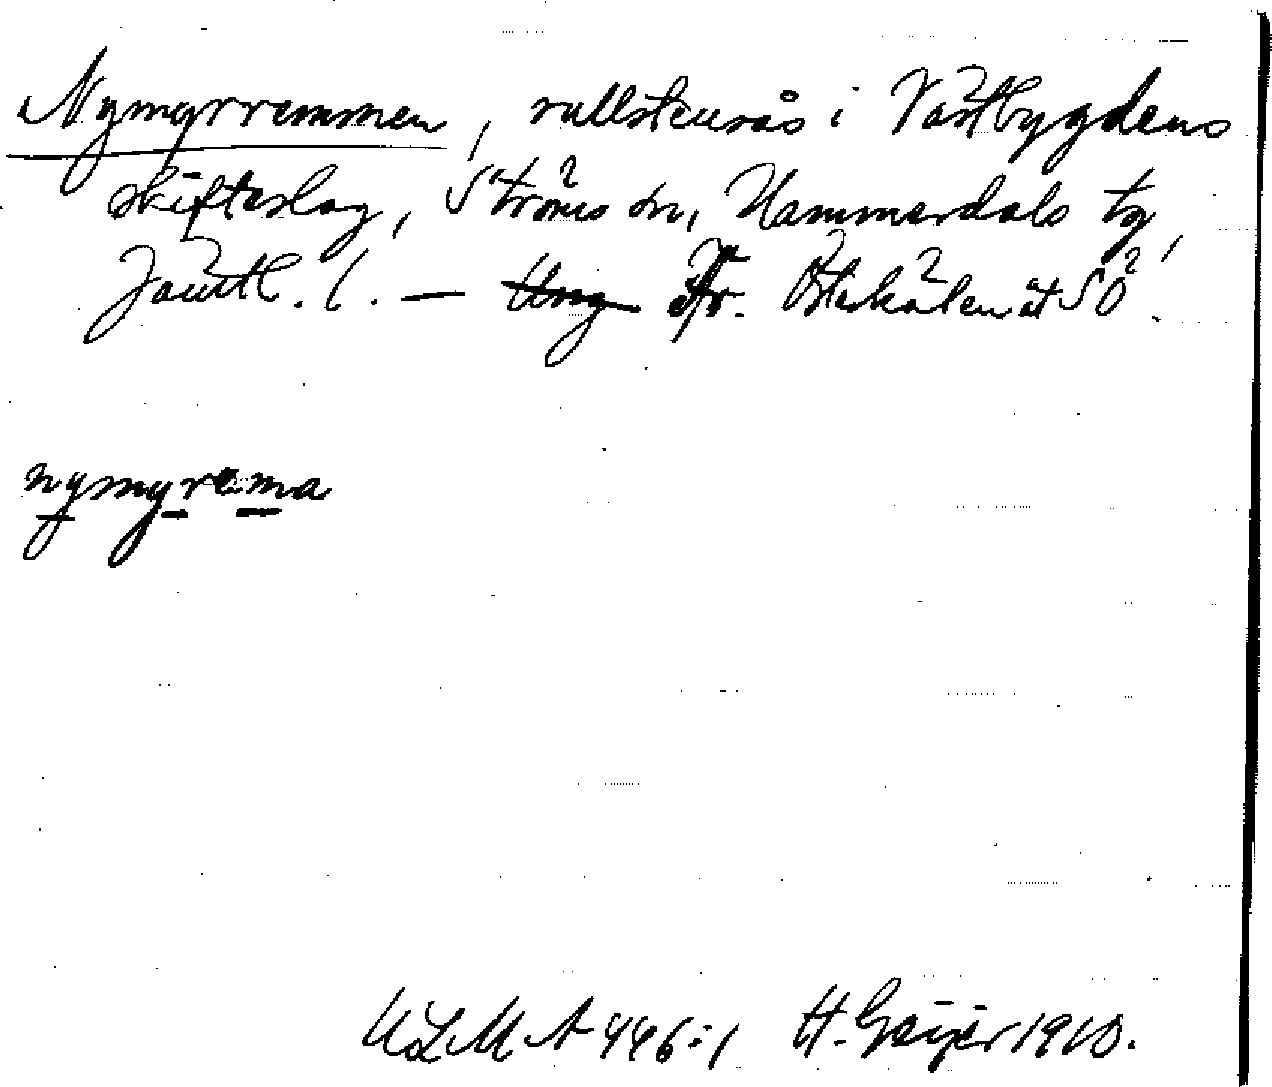 Nymyrremmen, rullstensås i Västbygdens
skifteslag, Ströms sn, Hammerdals tg,
Jämtl. l. — Ung Fr. Öhnkälen åt SÖ.
nymyrema
ULMA 446:1 H. Geijer 1910.